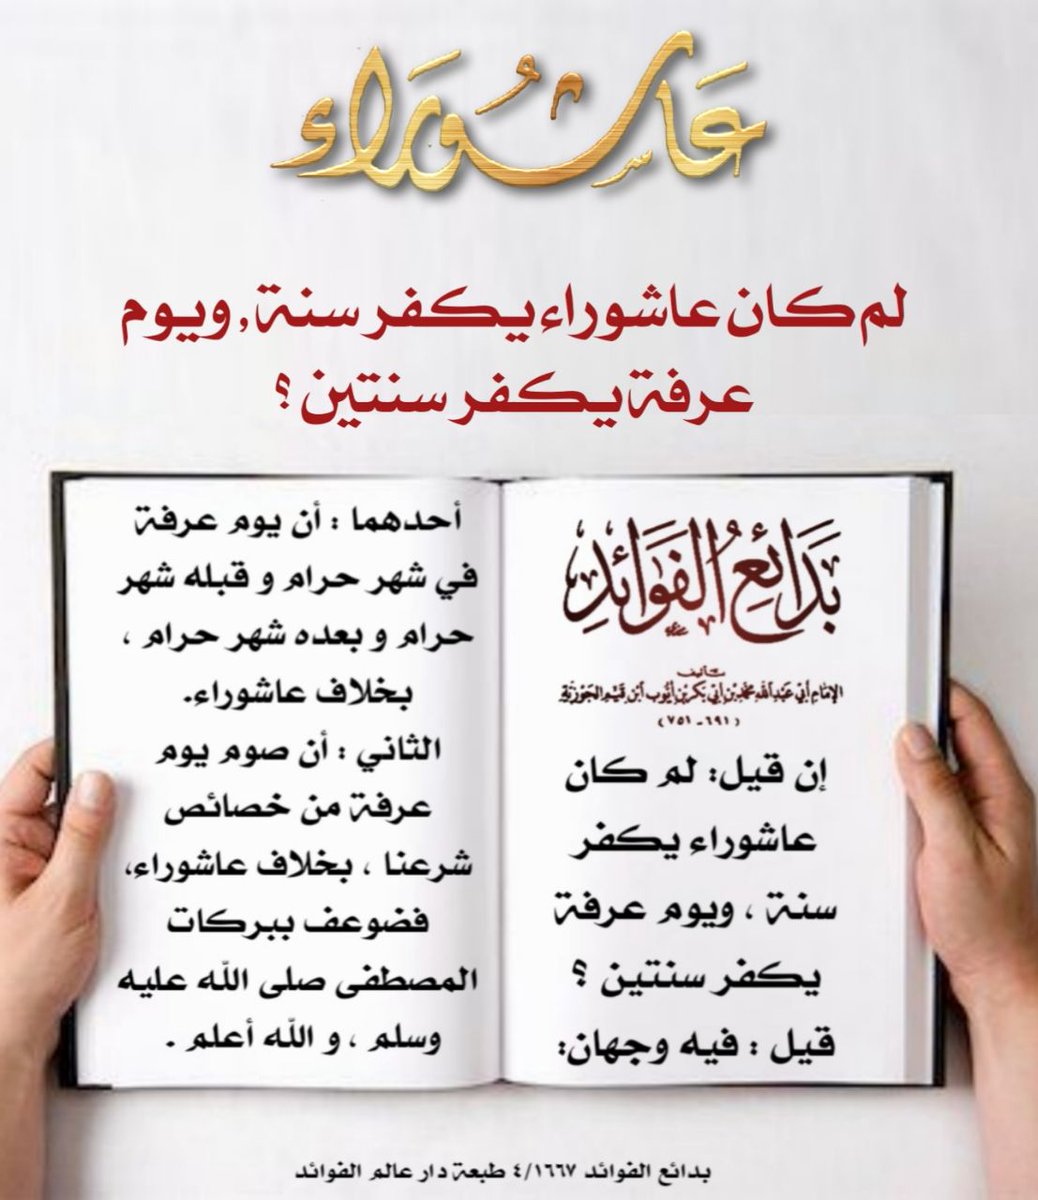 عَاشُورَاء
لم كان عاشوراء يكفر سنة, ويوم
عرفة يكفر سنتين ؟
بَدَائِعُ الفَوَائِدِ
تأليف
الإمام أبي عبد الله محمد بن أبي بكر بن أيوب ابن قيم الجوزية
(٦٩١ - ٧٥١)
إن قيل: لم كان
عاشوراء يكفر
سنة ، ويوم عرفة
يكفر سنتين ؟
قيل : فيه وجهان:
أحدهما : أن يوم عرفة
في شهر حرام و قبله شهر
حرام و بعده شهر حرام ،
بخلاف عاشوراء.
الثاني : أن صوم يوم
عرفة من خصائص
شرعنا ، بخلاف عاشوراء،
فضوعف ببركات
المصطفى صلى الله عليه
وسلم ، و الله أعلم .
بدائع الفوائد ٤/١٦٦٧ طبعة دار عالم الفوائد